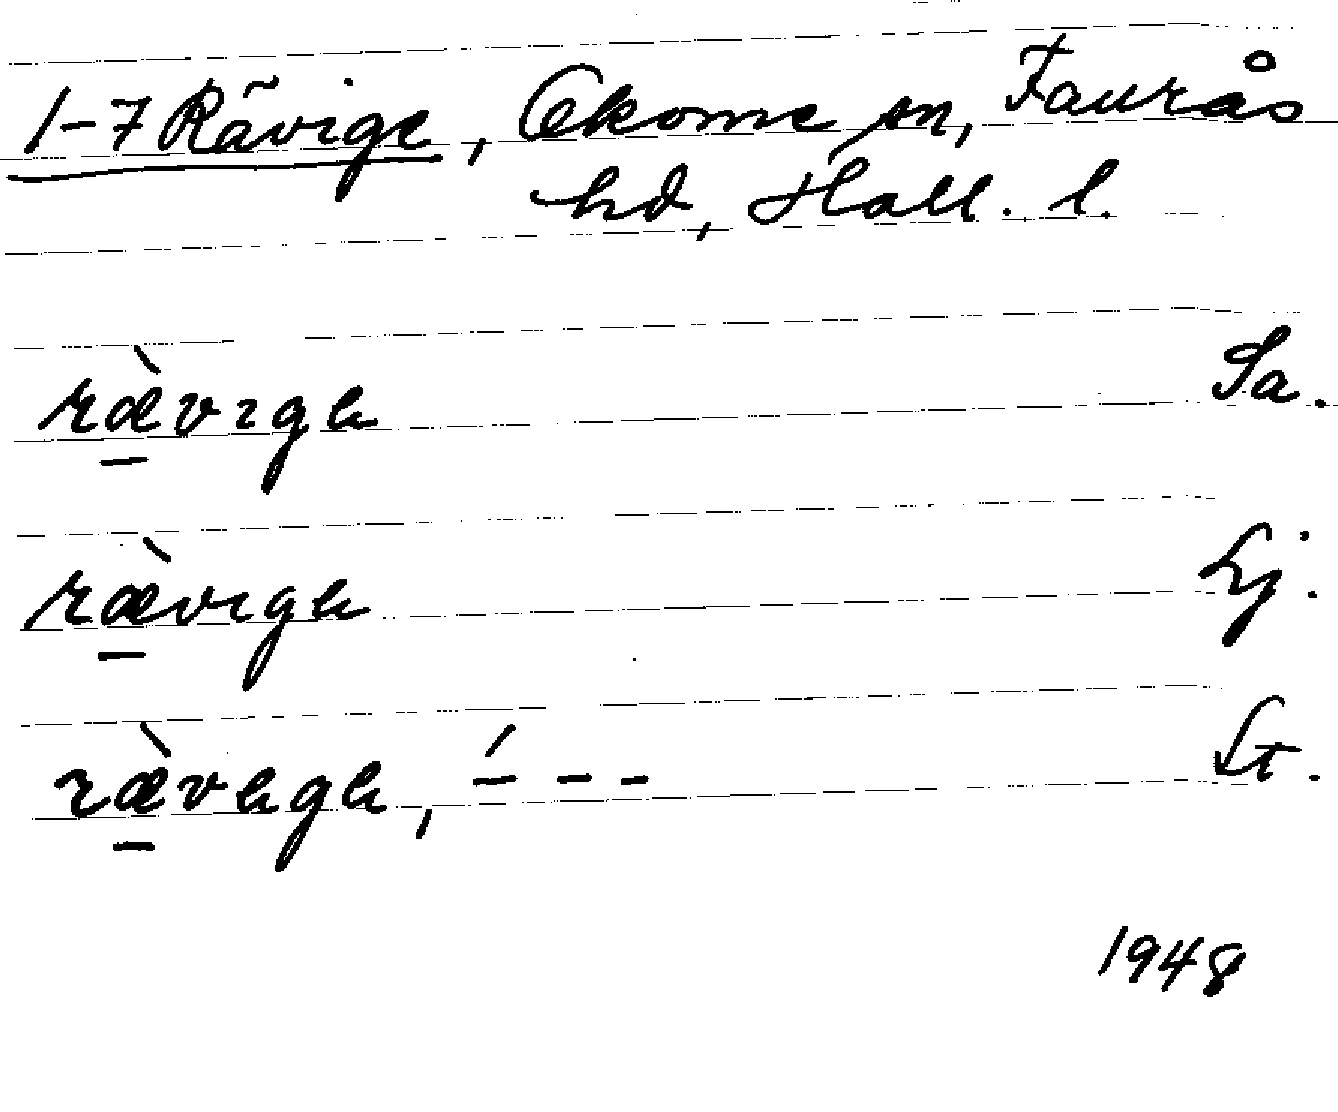 1-7 Rävige, Okome sn, Faurås
hd, Hall. l.
ræ̀vıgɐ Sa.
ræ̀vıgɐ Lj.
ræ̀vɐgɐ, –́ – - St.
1948